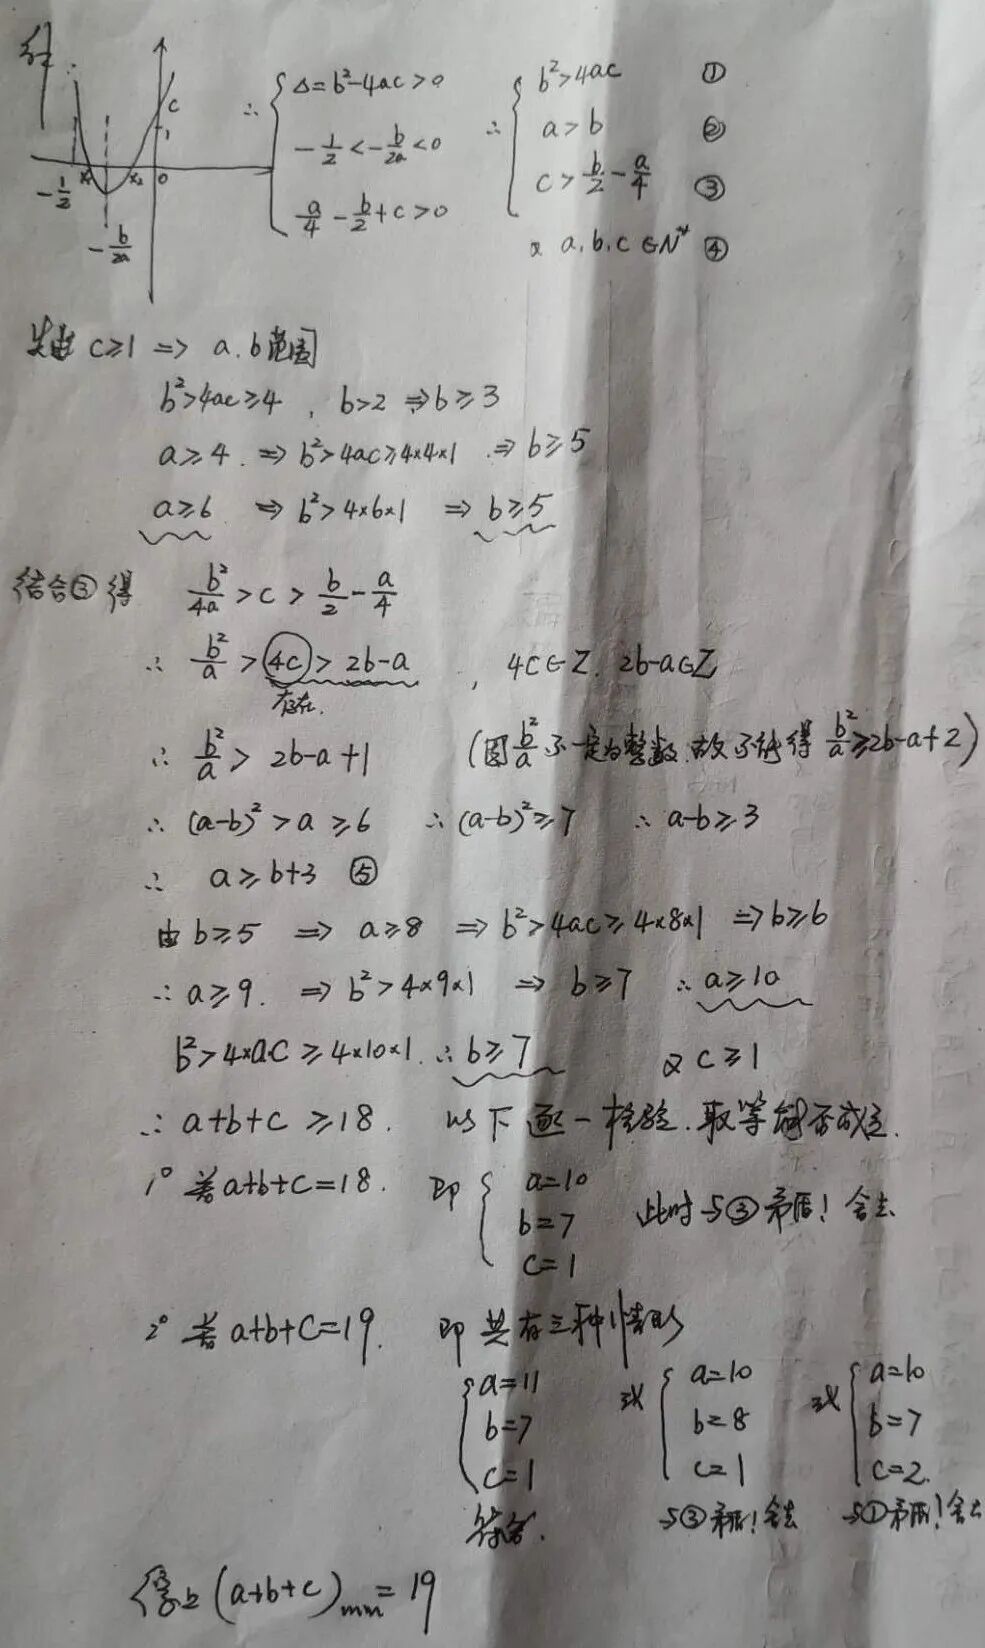 ∴ { Δ=b²-4ac>0 ∴ { b²>4ac ①
-1/2<-b/2a<0 a>b ②
a/4-b/2+c>0 c>b/2-a/4 ③
又 a,b,c∈N* ④
c 1 x₁ x₂ 0 -1/2 -b/2a
先由 c≥1 => a.b范围
b²>4ac≥4, b>2 ⇒b≥3
a≥4. ⇒ b²>4ac≥4×4×1 ⇒ b≥5
a≥6 ⇒ b²>4×6×1 ⇒ b≥5
结合③得 b²/4a > c > b/2 - a/4
∴ b²/a > 4c > 2b-a , 4c∈Z. 2b-a∈Z
存在.
∴ b²/a > 2b-a+1 (因b²/a不一定为整数.故不能得 b²/a≥2b-a+2)
∴ (a-b)²>a≥6 ∴(a-b)²≥7 ∴a-b≥3
∴ a≥b+3 ⑤
由b≥5 ⇒ a≥8 ⇒ b²>4ac≥4×8×1 ⇒b≥6
∴a≥9. ⇒ b²>4×9×1 ⇒ b≥7 ∴a≥10
b²>4×ac≥4×10×1.∴b≥7 又 c≥1
∴a+b+c≥18. 以下逐一检验.取等能否成立.
1° 若a+b+c=18. 即{ a=10 b=7 c=1 此时与③矛盾!舍去
2° 若a+b+c=19. 即共有三种情形
{ a=11 b=7 c=1 或 { a=10 b=8 c=1 或 { a=10 b=7 c=2.
符合. 与③矛盾!舍去 与①矛盾!舍去
综上(a+b+c)min=19